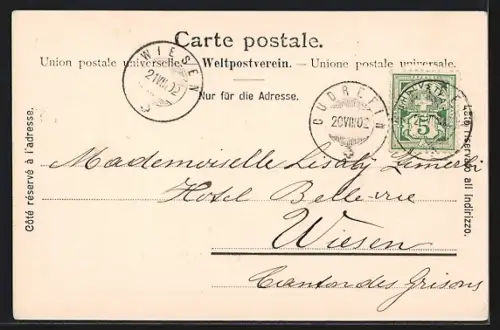 Carte postale.
Union postale universelle. Weltpostverein. - Unione postale universale.
Nur für die Adresse.
Côté réservé à l'adresse.
Lato riservato all' indirizzo.
WIESEN
21 VIII 02
CUDREFIN
20 VIII 02
5
Mademoiselle
Hotel Belle-vue
Wiesen
Canton des Grisons